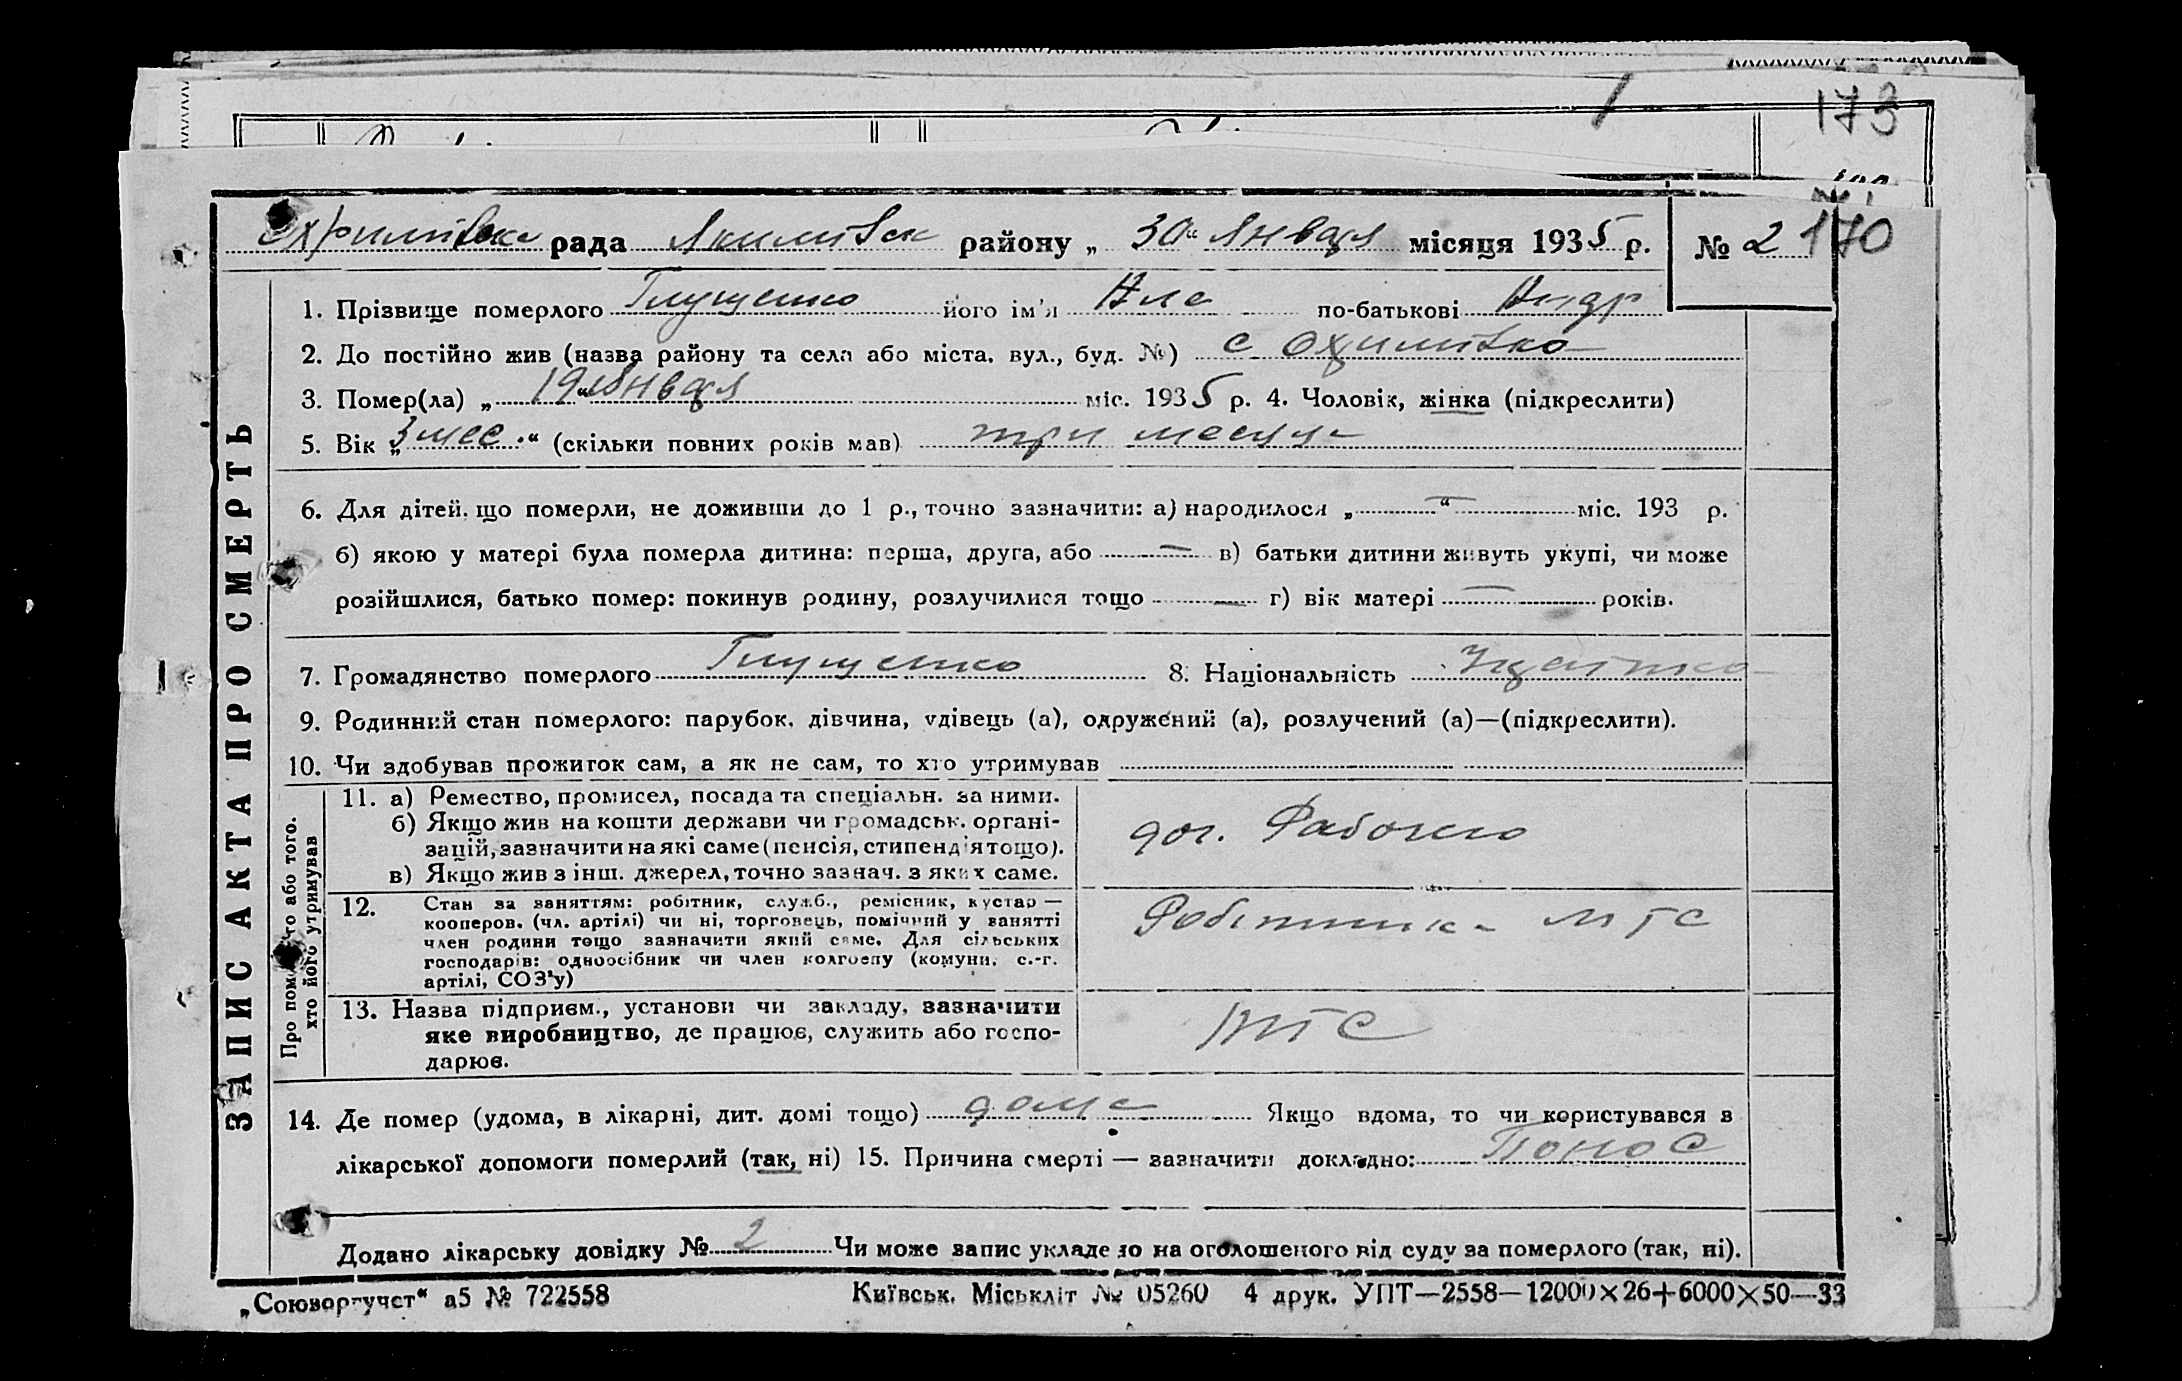 173
Охримівска рада Якимівск району „ 30 “ Января місяця 1935 р. № 2 170
1. Прізвище померлого Глущенко його ім'я Ала по-батькові Андр
2. До постійно жив (назва району та села або міста, вул., буд. №) с Охримівка
3. Помер(ла) „ 19 “ Января міс. 1935 р. 4. Чоловік, жінка (підкреслити)
5. Вік „ 3 мес. “ (скільки повних років мав) три месяця
6. Для дітей, що померли, не доживши до 1 р., точно зазначити: а) народилося „ — “ міс. 193 р.
б) якою у матері була померла дитина: перша, друга, або — в) батьки дитини живуть укупі, чи може
розійшлися, батько помер: покинув родину, розлучилися тощо — г) вік матері — років.
7. Громадянство померлого Глущенко 8. Національність
9. Родинний стан померлого: парубок, дівчина, удівець (а), одружений (а), розлучений (а)—(підкреслити).
10. Чи здобував прожиток сам, а як не сам, то хто утримував
11. а) Ремество, промисел, посада та спеціальн. за ними.
б) Якщо жив на кошти держави чи громадськ. органі-
зацій, зазначити на які саме (пенсія, стипендія тощо).
в) Якщо жив з інш. джерел, точно зазнач. з яких саме.
доч. Рабочего
12. Стан за заняттям: робітник, служб., ремісник, кустар —
кооперов. (чл. артілі) чи ні, торговець, помічний у занятті
член родини тощо зазначити який саме. Для сільських
господарів: одноосібник чи член колгоспу (комуни, с.-г.
артілі, СОЗ'у)
Робітника МТС
13. Назва підприєм., установи чи закладу, зазначити
яке виробництво, де працює, служить або госпо-
дарює.
МТС
14. Де помер (удома, в лікарні, дит. домі тощо) дома Якщо вдома, то чи користувався в
лікарської допомоги померлий (так, ні) 15. Причина смерті — зазначити докладно: Понос
Додано лікарську довідку № 2 Чи може запис укладено на оголошеного від суду за померлого (так, ні).
„Союзоргучет“ а5 № 722558 Київськ. Міськліт № 05260 4 друк. УПТ—2558—12000×26+6000×50—33
ЗАПИС АКТА ПРО СМЕРТЬ
або того.
хто його утримував